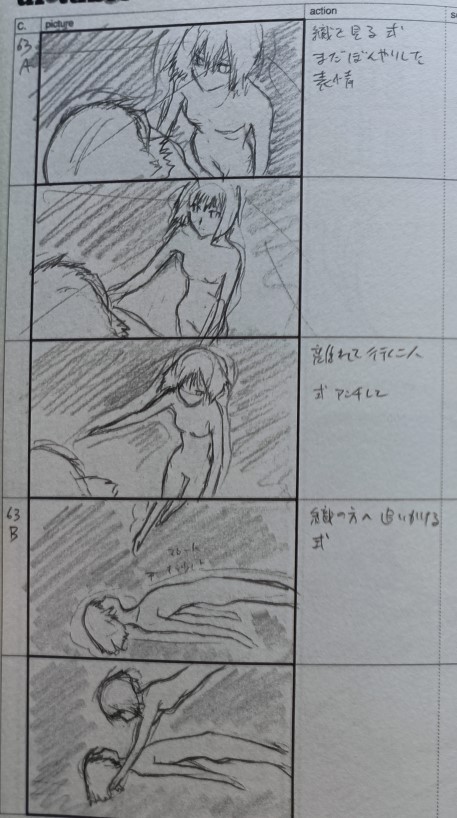 C.
picture
action
63
A
織を見る 式
まだぼんやりした
表情
離れて行く二人
式 アンチして
63
B
織の方へ 追いかける
式